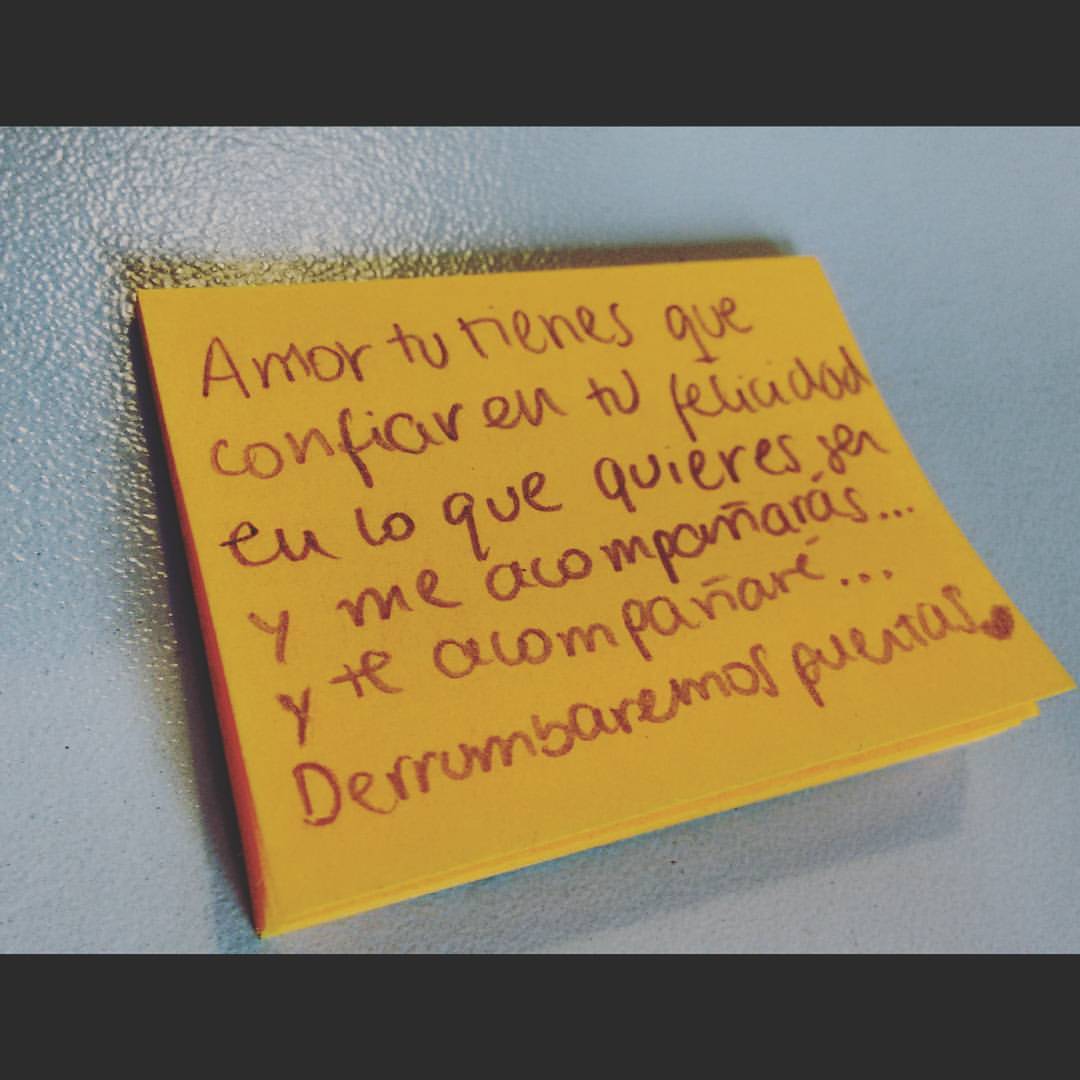 Amor tu tienes que
confiar en tu felicidad
en lo que quieres ser
y me acompañarás...
y te acompañaré...
Derrumbaremos puertas